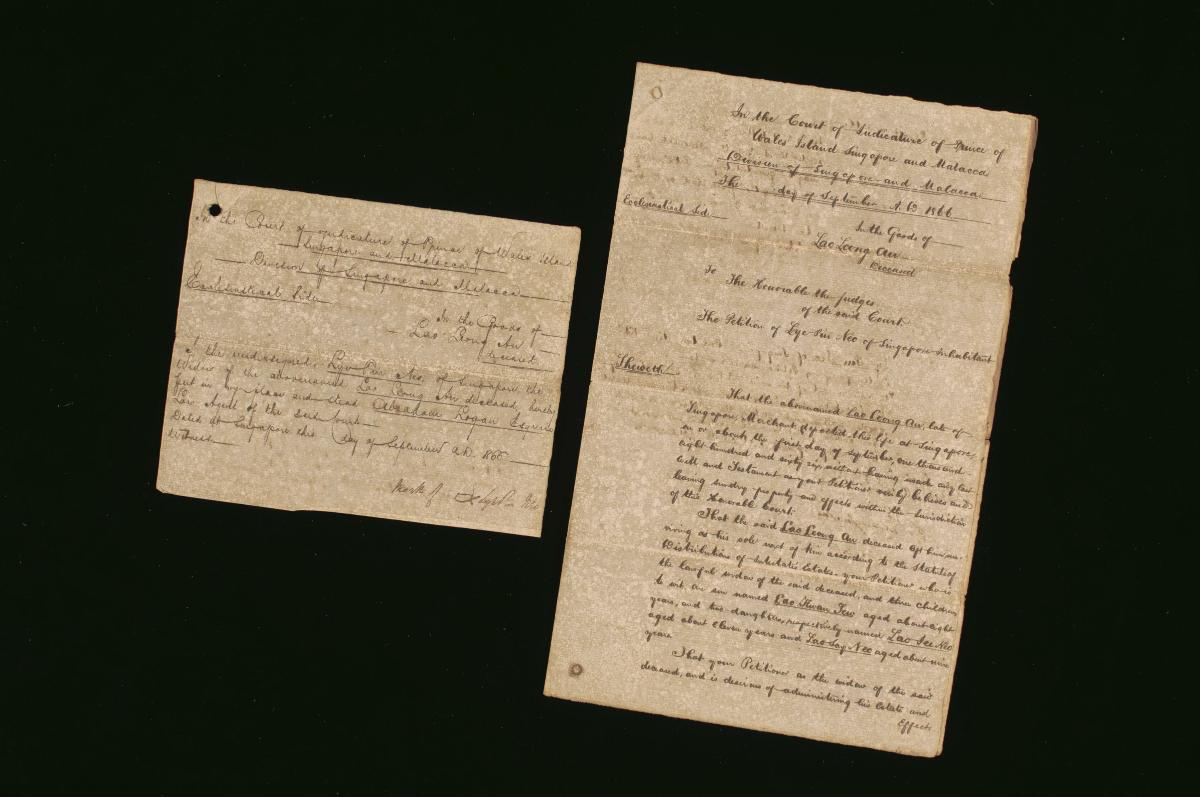 In the Court of Judicature of Prince of Wales Island
Singapore and Malacca
Division of Singapore and Malacca
Ecclesiastical Side
In the Goods of
Lao Leong An
Deceased
I the undersigned, Lye Pin Neo, of Singapore the
Widow of the abovenamed Lao Leong An deceased, hereby
put in my place and stead Abraham Logan Esquire
Law Agent of the said Court
Dated at Singapore this day of September A.D. 1866
Witness
Mark of X Lye Pin Neo
In the Court of Judicature of Prince of
Wales' Island Singapore and Malacca
Division of Singapore and Malacca
The day of September A.D. 1866
Ecclesiastical Side
In the Goods of
Lao Leong An
Deceased
To
The Honorable the Judges
of the said Court
The Petition of Lye Pin Neo of Singapore Inhabitant
Sheweth
That the abovenamed Lao Leong An, late of
Singapore, Merchant departed this life at Singapore
on or about the first day of September one thousand
eight hundred and sixty six without having made any last
Will and Testament as your Petitioner verily believes and
leaving sundry property and effects within the Jurisdiction
of this Honorable Court.
That the said Lao Leong An deceased left him sur-
viving as his sole next of kin according to the Statute of
Distributions of Intestates Estates your Petitioner who is
the lawful widow of the said deceased, and three children
to wit one son named Lao Kwan Yew aged about eight
years, and two daughters, respectively named Lao See Neo
aged about eleven years and Lao Say Neo aged about nine
years
That your Petitioner as the widow of the said
deceased, and is desirous of administering his Estate and
Effects